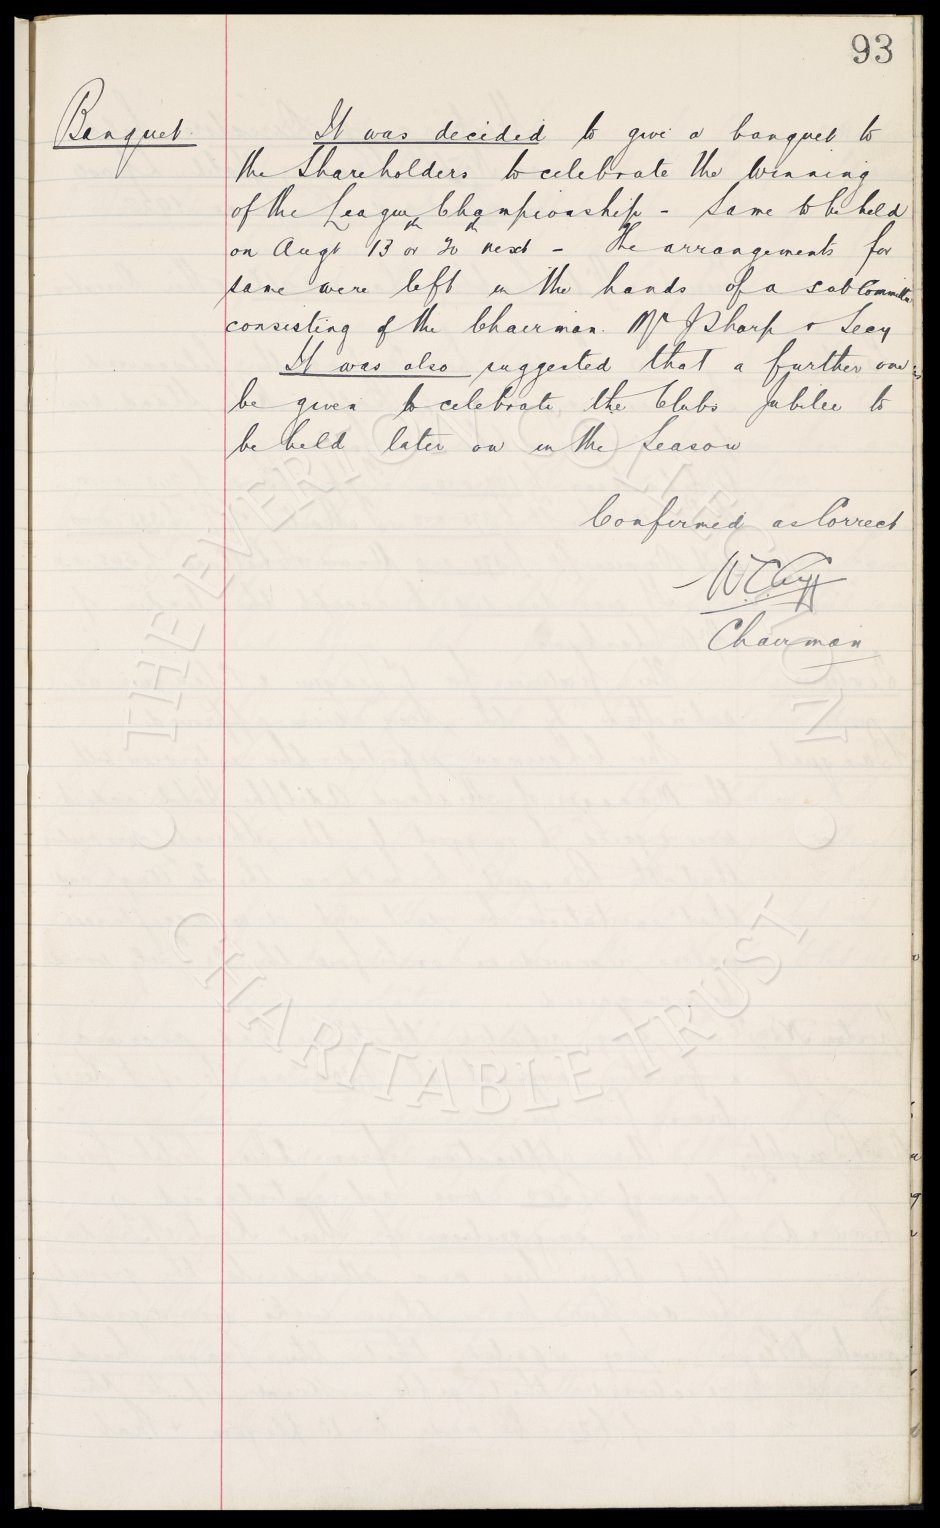 93
Banquet.
It was decided to give a banquet to
the Shareholders to celebrate the winning
of the League Championship - Same to be held
on Augt 13th or 20th next - The arrangements for
same were left in the hands of a sub Committee
consisting of the Chairman. Mr J Sharp & Secy
It was also suggested that a further one
be given to celebrate the Clubs Jubilee to
be held later on in the Season
Confirmed as Correct
W. C. Cuff
Chairman
THE EVERTON COLLECTION
CHARITABLE TRUST